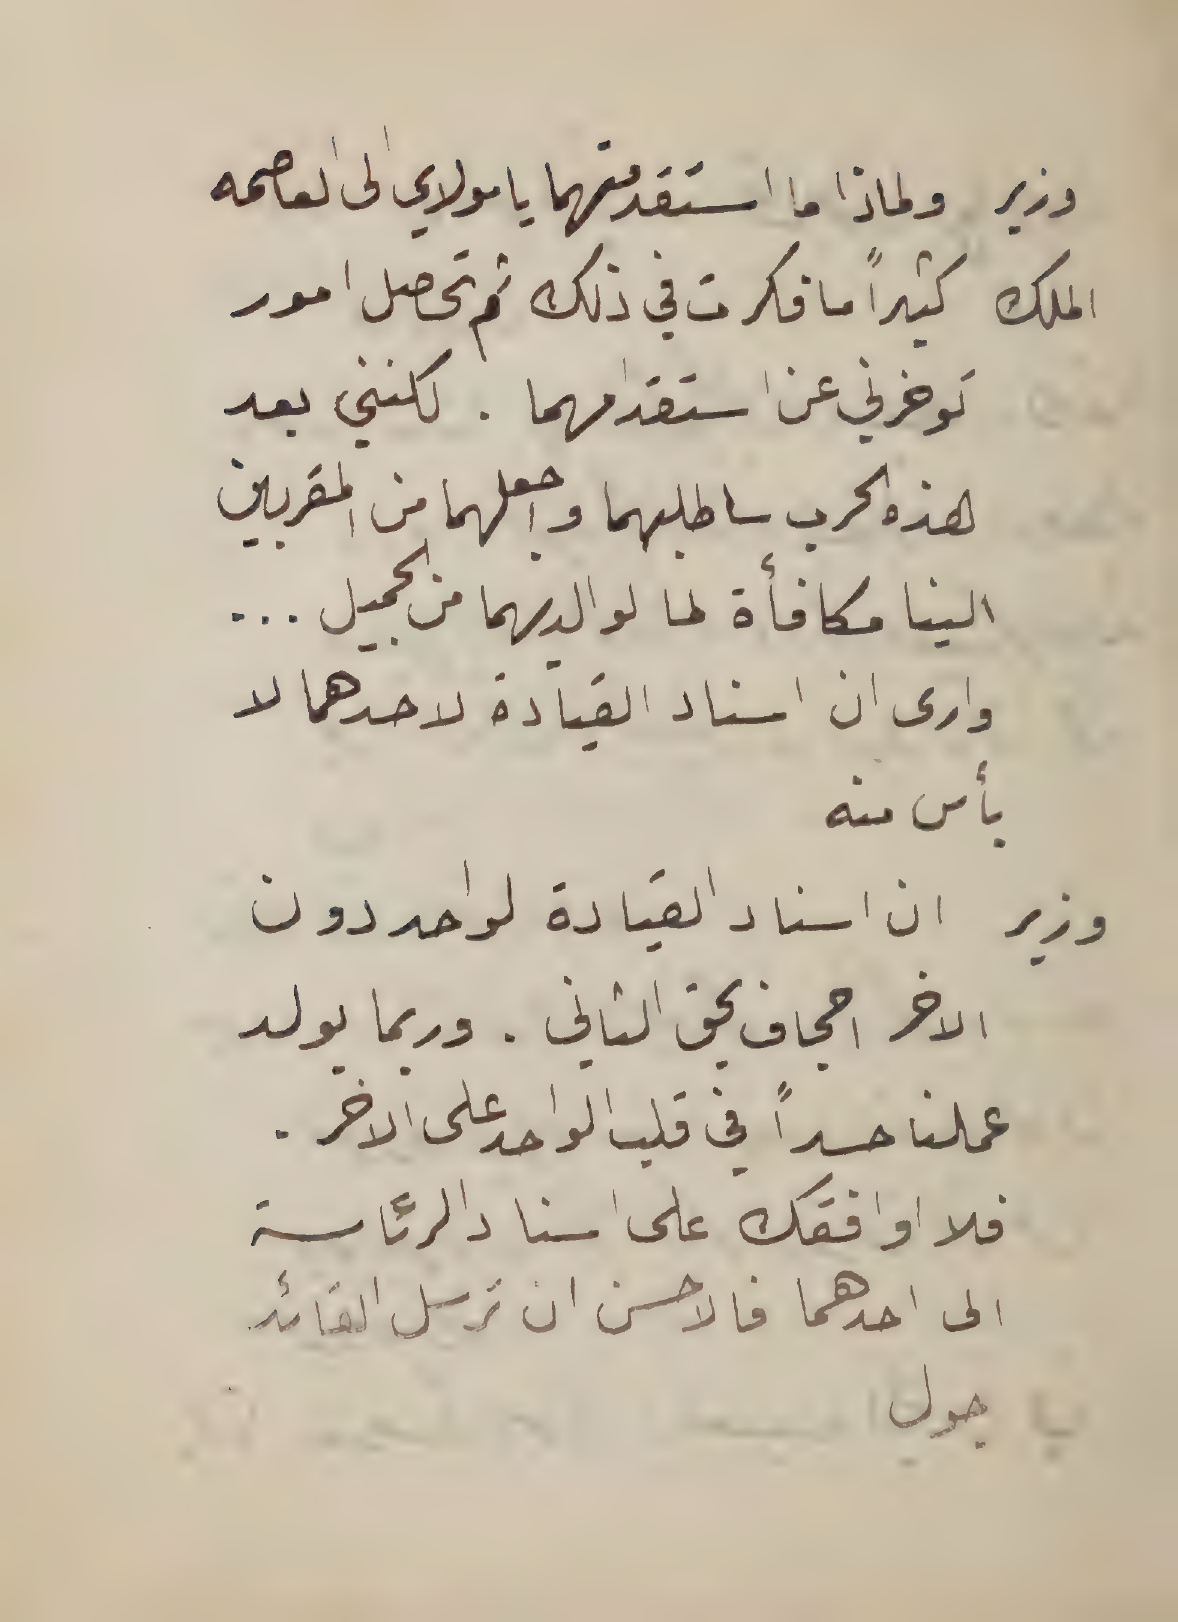 وزير ولماذا ما استقدمتهما يا مولاي الى العاصمه
الملك كثيراً ما فكرت في ذلك ثم تحصل امور
توخرني عن استقدامهما . لكنني بعد
هذه الحرب ساطلبهما واجعلهما من المقربين
الينا مكافأة لما لوالديهما من الجميل ...
وارى ان اسناد القيادة لاحدهما لا
بأس منه
وزير ان اسناد القيادة لواحد دون
الاخر اجحاف بحق الثاني . وربما يولد
عملنا حسداً في قلب الواحد على الاخر .
فلا اوافقك على اسناد الرئاسة
الى احدهما فالاحسن ان ترسل القائد
جول